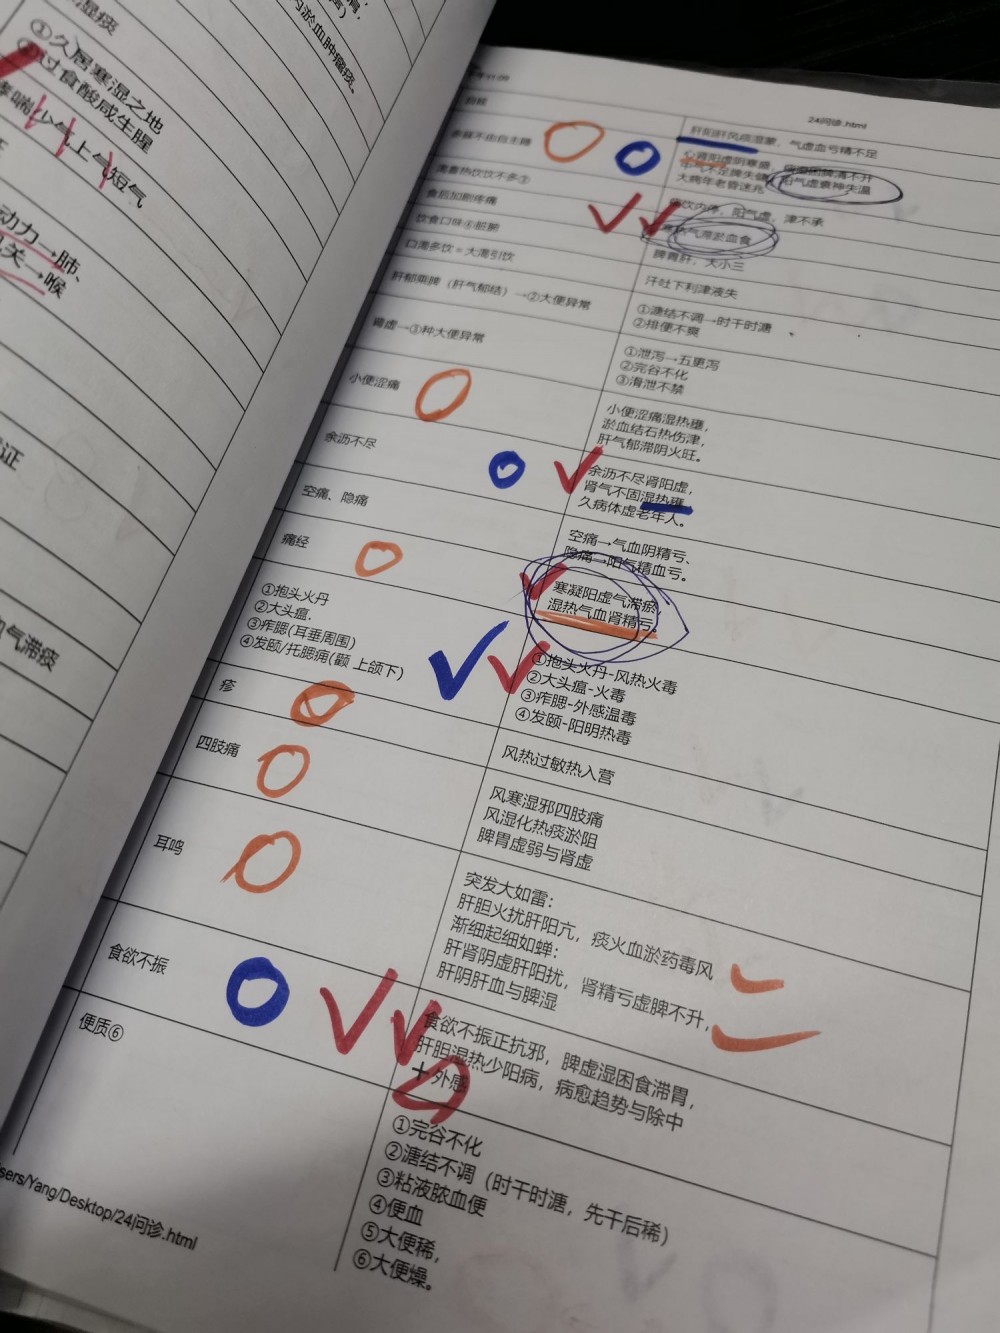 ①久居寒湿之地
②过食酸咸生腥
少气 上气 短气
动力→肺、
关→喉
气滞痰
内淤血肿瘤痰。
24问诊.html
肝阳肝风痰湿蒙，气虚血亏精不足
阳气虚衰神失温
饮内停，阳气虚，津不承
气滞淤血食
食后加剧疼痛
饮食口味④脏腑
脾胃肝，大小三
口渴多饮=大渴引饮
汗吐下利津液失
肝郁乘脾（肝气郁结）→②大便异常
①溏结不调→时干时溏
②排便不爽
肾虚→③种大便异常
①泄泻→五更泻
②完谷不化
③滑泄不禁
小便涩痛
小便涩痛湿热蕴，
淤血结石热伤津，
肝气郁滞阴火旺。
余沥不尽
余沥不尽肾阳虚，
肾气不固湿热蕴，
久病体虚老年人。
空痛、隐痛
空痛→气血阴精亏、
隐痛→阳气精血亏。
痛经
寒凝阳虚气滞淤
湿热气血肾精亏。
①抱头火丹
②大头瘟.
③痄腮(耳垂周围)
④发颐/托腮痈(颧 上颌下）
①抱头火丹-风热火毒
②大头瘟-火毒
③痄腮-外感温毒
④发颐-阳明热毒
疹
风热过敏热入营
四肢痛
风寒湿邪四肢痛
风湿化热痰淤阻
脾胃虚弱与肾虚
耳鸣
突发大如雷：
肝胆火扰肝阳亢，痰火血淤药毒风
渐细起细如蝉：
肝肾阴虚肝阳扰，肾精亏虚脾不升，
肝阴肝血与脾湿
食欲不振
食欲不振正抗邪，脾虚湿困食滞胃，
肝胆湿热少阳病，病愈趋势与除中
+外感
便质⑥
①完谷不化
②溏结不调（时干时溏，先干后稀）
③粘液脓血便
④便血
⑤大便稀，
⑥大便燥。
sers/Yang/Desktop/24问诊.html